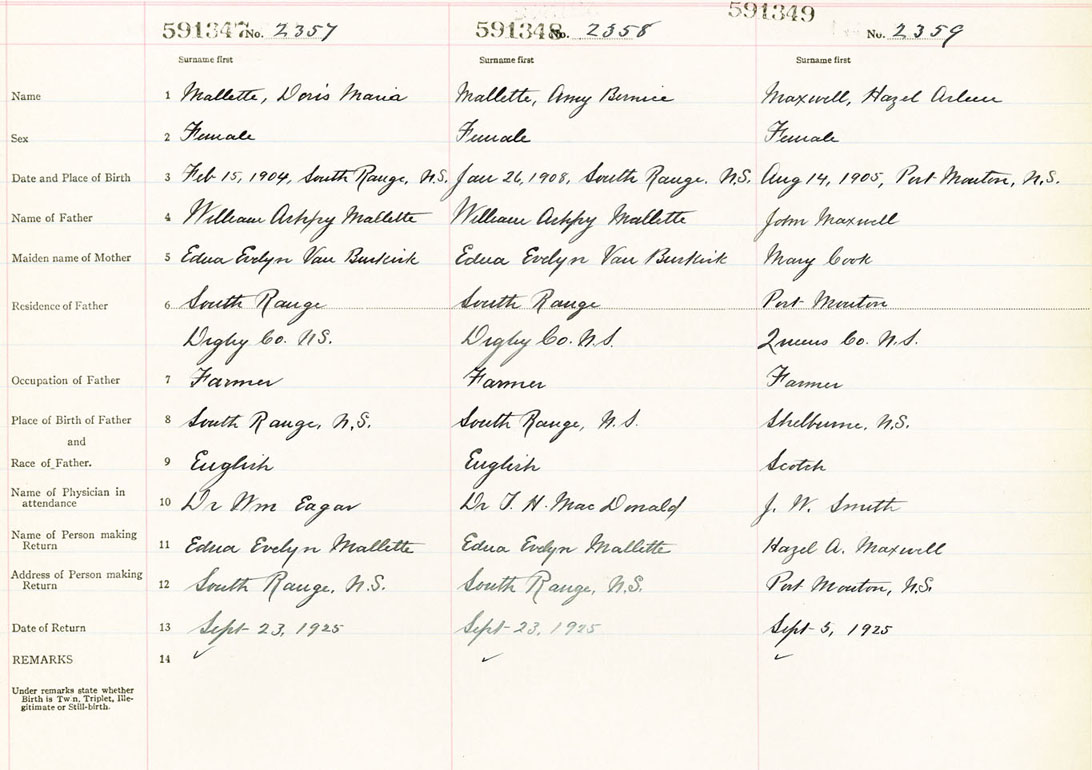 591347 No. 2357 591348 No. 2358 591349 No. 2359
Surname first Surname first Surname first
Name 1 Mallette, Doris Maria Mallette, Amy Bernice Maxwell, Hazel Arleen
Sex 2 Female Female Female
Date and Place of Birth 3 Feb 15, 1904, South Range, N.S. Jan 26, 1908, South Range. N.S. Aug 14, 1905, Port Mouton, N.S.
Name of Father 4 William Asppy Mallette William Asppy Mallette John Maxwell
Maiden name of Mother 5 Edna Evelyn Van Burkirk Edna Evelyn Van Burkirk Mary Cook
Residence of Father 6 South Range South Range Port Mouton
Digby Co. N.S. Digby Co. N.S. Queens Co. N.S.
Occupation of Father 7 Farmer Farmer Farmer
Place of Birth of Father 8 South Range, N.S. South Range, N.S. Shelburne, N.S.
and
Race of Father. 9 English English Scotch
Name of Physician in
attendance 10 Dr Wm Eagar Dr T. H. MacDonald J. W. Smith
Name of Person making
Return 11 Edna Evelyn Mallette Edna Evelyn Mallette Hazel A. Maxwell
Address of Person making
Return 12 South Range, N.S. South Range, N.S. Port Mouton, N.S.
Date of Return 13 Sept 23, 1925 Sept 23, 1925 Sept 5, 1925
REMARKS 14
Under remarks state whether
Birth is Twin, Triplet, Ille-
gitimate or Still-birth.